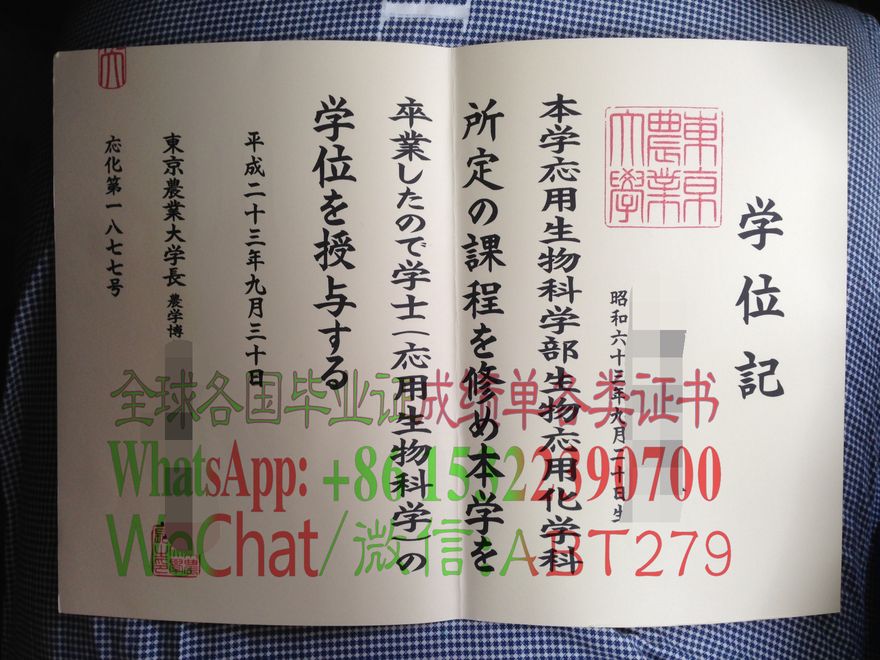 学位記
東京
農業
大學
昭和六十三年九月二十日生
本学応用生物科学部生物応用化学科
所定の課程を修め本学を
卒業したので学士(応用生物科学)の
学位を授与する
平成二十三年九月三十日
東京農業大学長 農学博
応化第一八七七号
全球各国毕业证成绩单各类证书
WhatsApp: +86
WeChat/微信:ABT279